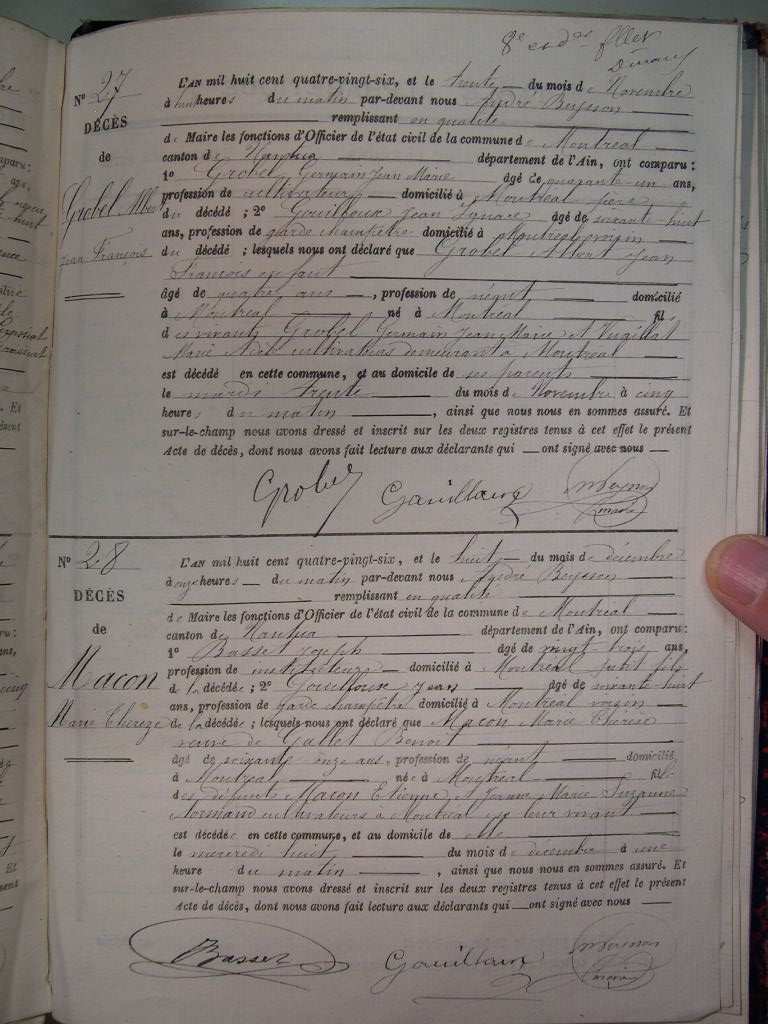 8e et d
Nº 27
DÉCÈS
de
Grobel Albert
Jean François
L'AN mil huit cent quatre-vingt-six, et le trente du mois de Novembre
à huit heures du matin par-devant nous André Beysson
remplissant en qualité
de Maire les fonctions d'Officier de l'état civil de la commune de Montréal
canton de Nantua département de l'Ain, ont comparu :
1º Grobel Germain Jean Marie âgé de quarante un ans,
profession de cultivateur domicilié à Montréal père
du décédé ; 2º Gouilloux Jean Ignace âgé de soixante huit
ans, profession de garde champêtre domicilié à Montréal voisin
du décédé ; lesquels nous ont déclaré que Grobel Albert Jean
François enfant
âgé de quatre ans, profession de néant domicilié
à Montréal né à Montréal fil
des vivants Grobel Germain Jean Marie et
Marie cultivateurs demeurant à Montréal
est décédé en cette commune, et au domicile de ses parents
le mardi trente du mois de Novembre à cinq
heures du matin, ainsi que nous nous en sommes assuré. Et
sur-le-champ nous avons dressé et inscrit sur les deux registres tenus à cet effet le présent
Acte de décès, dont nous avons fait lecture aux déclarants qui ont signé avec nous
Grobel
Nº 28
DÉCÈS
de
Macon
Marie Thereze
L'AN mil huit cent quatre-vingt-six, et le huit du mois de décembre
à onze heures du matin par-devant nous André Beysson
remplissant en qualité
de Maire les fonctions d'Officier de l'état civil de la commune de Montréal
canton de Nantua département de l'Ain, ont comparu :
1º Basset Joseph âgé de vingt trois ans,
profession de instituteur domicilié à Montréal petit fils
de la décédée ; 2º Gouilloux Jean âgé de soixante huit
ans, profession de garde champêtre domicilié à Montréal voisin
de la décédée ; lesquels nous ont déclaré que Macon Marie Thérèse
veuve de Gallet Benoit
âgé de soixante onze ans, profession de néant domicilié,
à Montréal née à Montréal fille
des défunts Macon Etienne et Jeanne Marie Suzanne
Normand cultivateurs à Montréal de leur vivant
est décédée en cette commune, et au domicile de elle
le mercredi huit du mois de décembre à une
heure du matin, ainsi que nous nous en sommes assuré. Et
sur-le-champ nous avons dressé et inscrit sur les deux registres tenus à cet effet le présent
Acte de décès, dont nous avons fait lecture aux déclarants qui ont signé avec nous
Basset